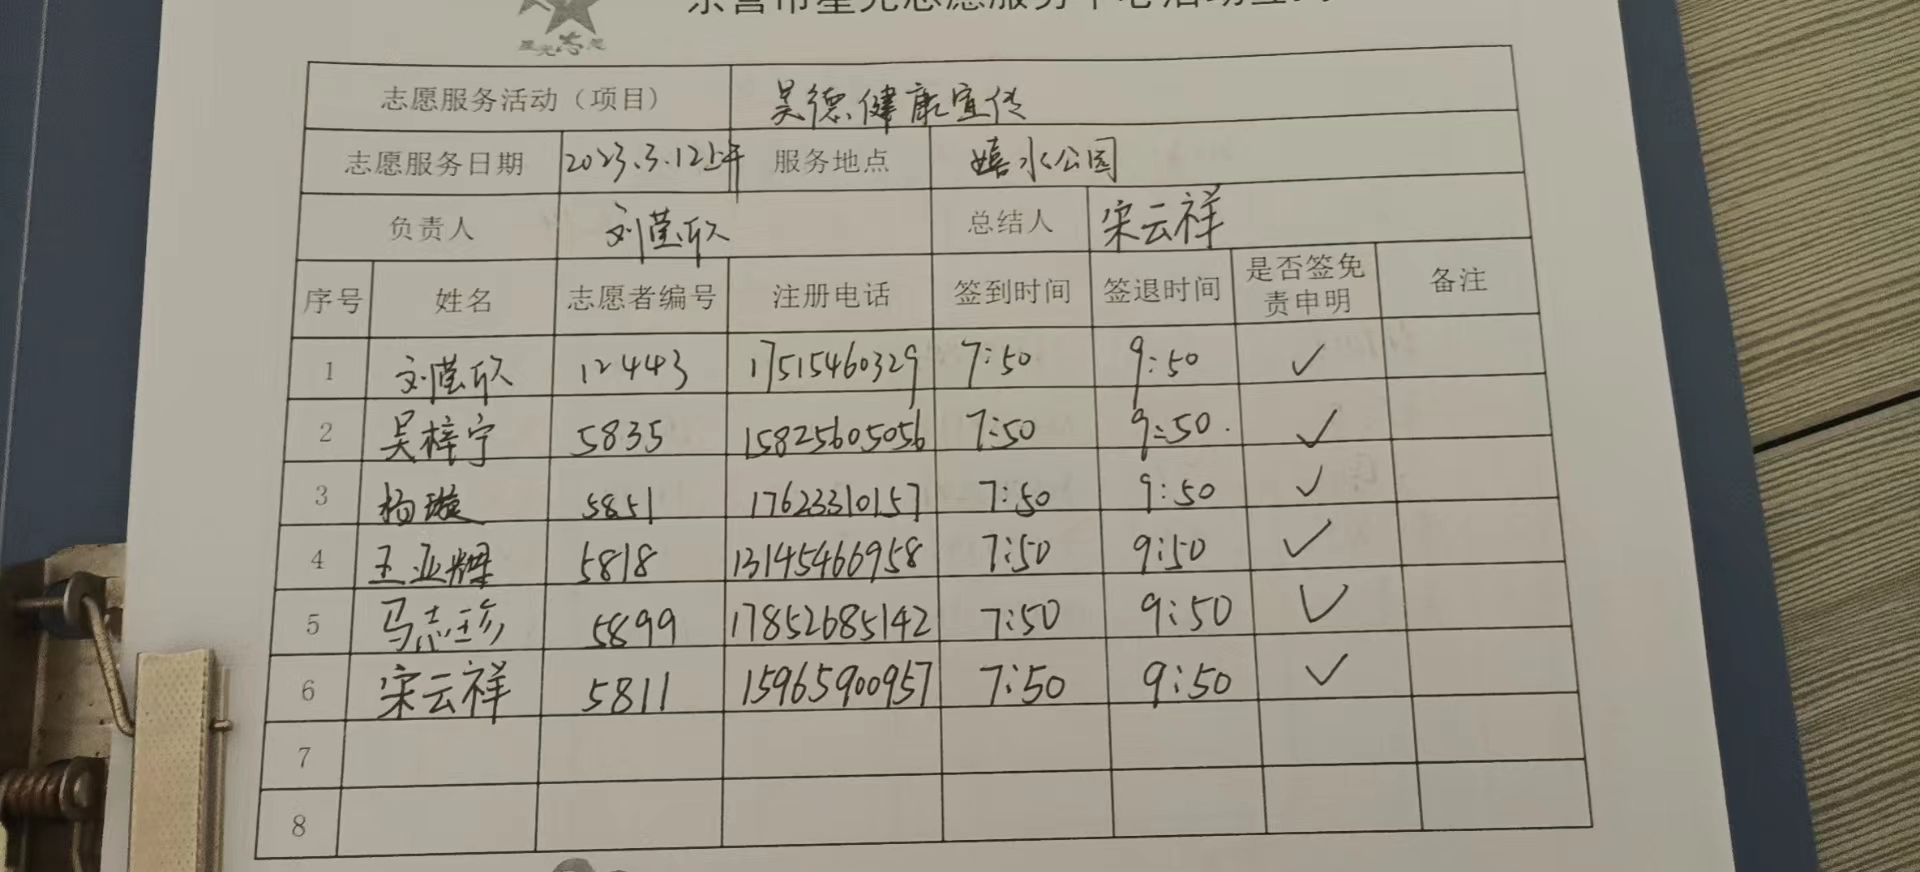 星光志愿
东营市星光志愿服务中心活动签到
志愿服务活动（项目） 吴德健康宣传
志愿服务日期 2023.3.12上午 服务地点 嬉水公园
负责人 刘莹欣 总结人 宋云祥
序号 姓名 志愿者编号 注册电话 签到时间 签退时间 是否签免责申明 备注
1 刘莹欣 12443 17515460329 7:50 9:50 ✓
2 吴梓宁 5835 15825605056 7:50 9:50. ✓
3 杨璇 5851 17623310157 7:50 9:50 ✓
4 王亚辉 5818 13145466958 7:50 9:50 ✓
5 马志珍 5899 17852685142 7:50 9:50 ✓
6 宋云祥 5811 15965900957 7:50 9:50 ✓
7
8